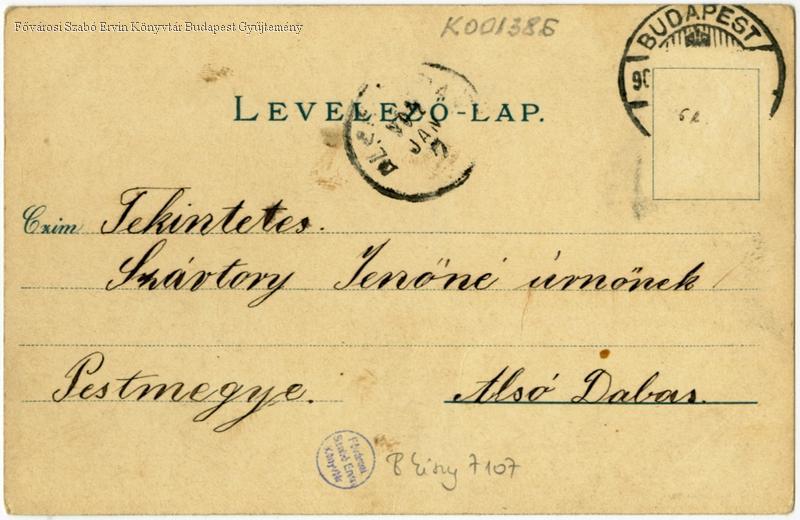 Fővárosi Szabó Ervin Könyvtár Budapest Gyűjtemény
K001386
BUDAPEST
90
LEVELEZŐ-LAP.
JAN
6 k
Czim Tekintetes.
Szávtory Jenőné úrnőnek
Pestmegye. Alsó Dabas.
Fővárosi
Szabó Ervin
Könyvtár
7107